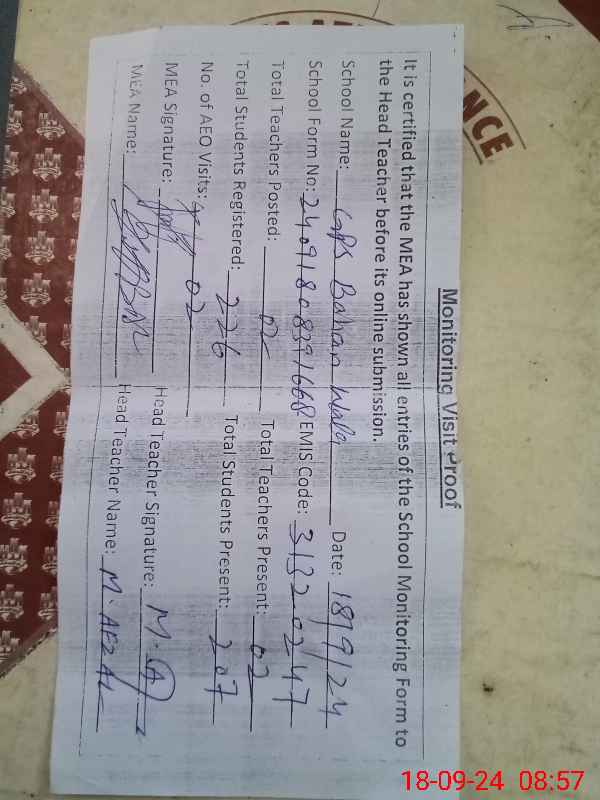 Monitoring Visit Proof
It is certified that the MEA has shown all entries of the School Monitoring Form to
the Head Teacher before its online submission.
School Name: GPS Bahar Wala Date: 18/9/24
School Form No: 24091808391668 EMIS Code: 31320247
Total Teachers Posted: 02 Total Teachers Present: 02
Total Students Registered: 226 Total Students Present: 207
No. of AEO Visits: 02
MEA Signature: Head Teacher Signature: M.A
MEA Name: Head Teacher Name: M. AFZAL
NCE
18-09-24 08:57